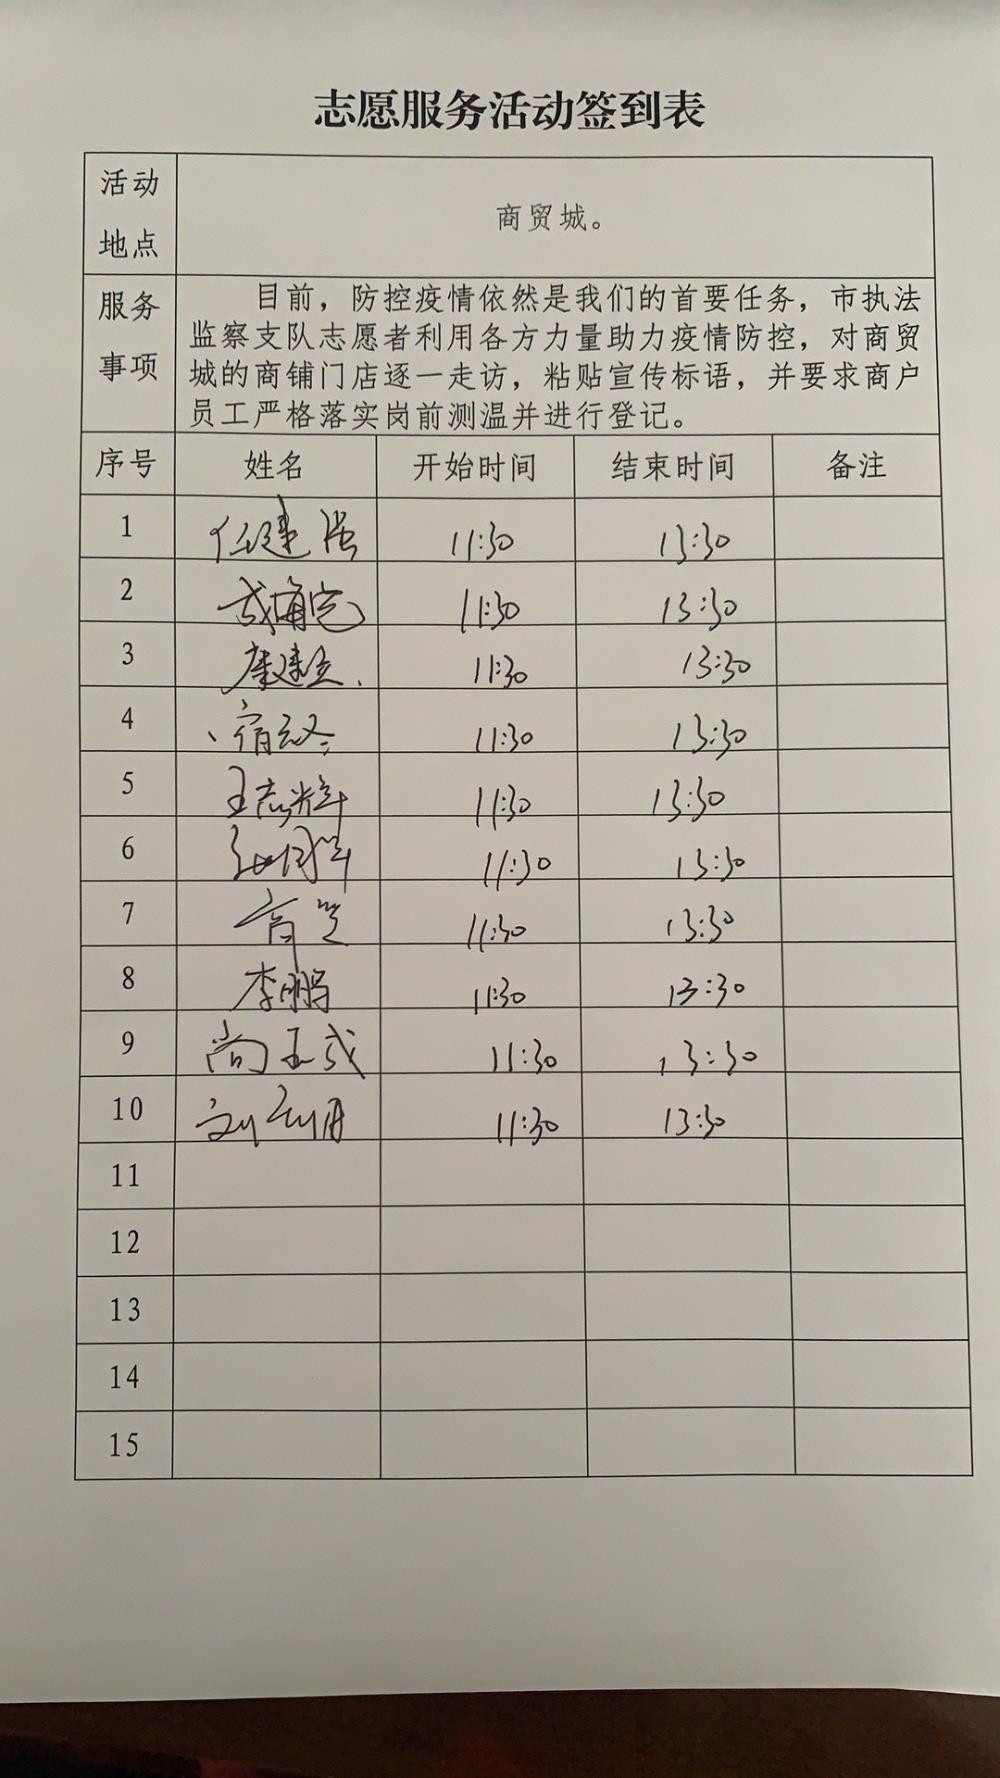 志愿服务活动签到表
活动地点 商贸城。
服务事项
目前，防控疫情依然是我们的首要任务，市执法
监察支队志愿者利用各方力量助力疫情防控，对商贸
城的商铺门店逐一走访，粘贴宣传标语，并要求商户
员工严格落实岗前测温并进行登记。
序号 姓名 开始时间 结束时间 备注
1 任建强 11:30 13:30
2 11:30 13:30
3 康建立 11:30 13:30
4 11:30 13:30
5 王志辉 11:30 13:30
6 11:30 13:30
7 11:30 13:30
8 李鹏 11:30 13:30
9 尚玉成 11:30 13:30
10 11:30 13:30
11
12
13
14
15